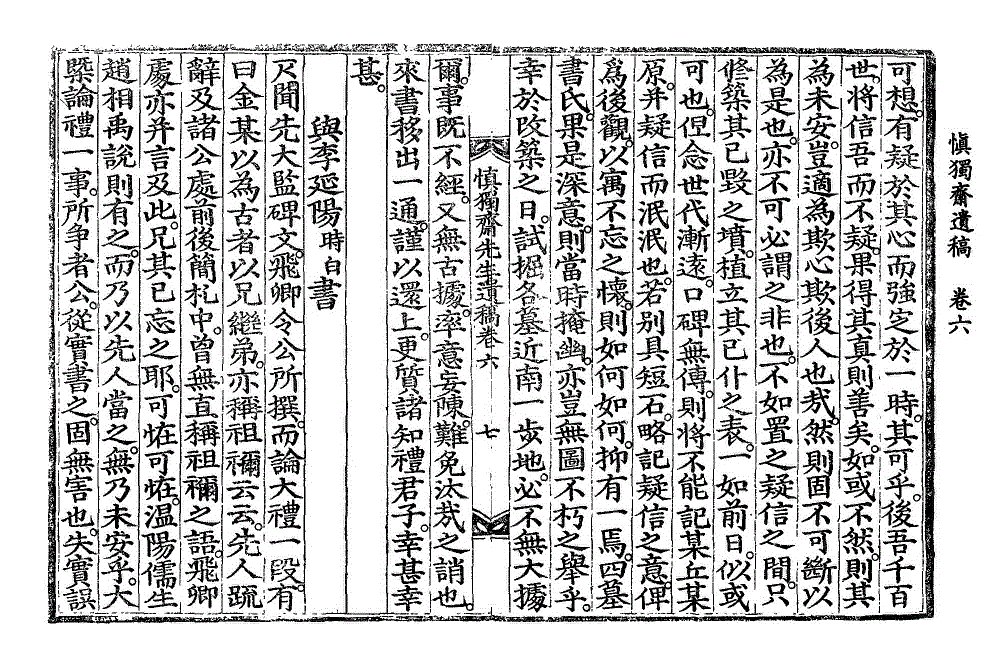 愼獨齋遺稿 卷六
可想。有疑於其心而強定於一時。其可乎。後吾千百
世。將信吾而不疑。果得其真則善矣。如或不然。則其
為未安。豈適為欺心欺後人也哉。然則固不可斷以
為是也。亦不可必謂之非也。不如置之疑信之間。只
修築其已毀之墳。植立其已仆之表。一如前日。似或
可也。但念世代漸遠。口碑無傳。則將不能記某丘某
原。并疑信而泯泯也。若別具短石。略記疑信之意。俾
爲後觀。以寓不忘之懷。則如何如何。抑有一焉。四墓
書氏。果是深意。則當時掩幽。亦豈無圖不朽之擧乎。
幸於改築之日。試掘各墓近南一步地。必不無大據
慎獨齋先生遺稿卷六 七
爾。事旣不經。又無古據。率意妄陳。難免汰哉之誚也。
來書移出一通。謹以還上。更質諸知禮君子。幸甚幸
甚。
與李延陽 時白 書
仄聞先大監碑文。飛卿令公所撰。而論大禮一段。有
曰金某以為古者以兄繼弟。亦稱祖禰云云。先人疏
辭及諸公處前後簡札中。曾無直稱祖禰之語。飛卿
處亦并言及此。兄其已忘之耶。可恠可恠。溫陽儒生
趙相禹說則有之。而乃以先人當之。無乃未安乎。大
槩論禮一事。所争者公。從實書之。固無害也。失實誤